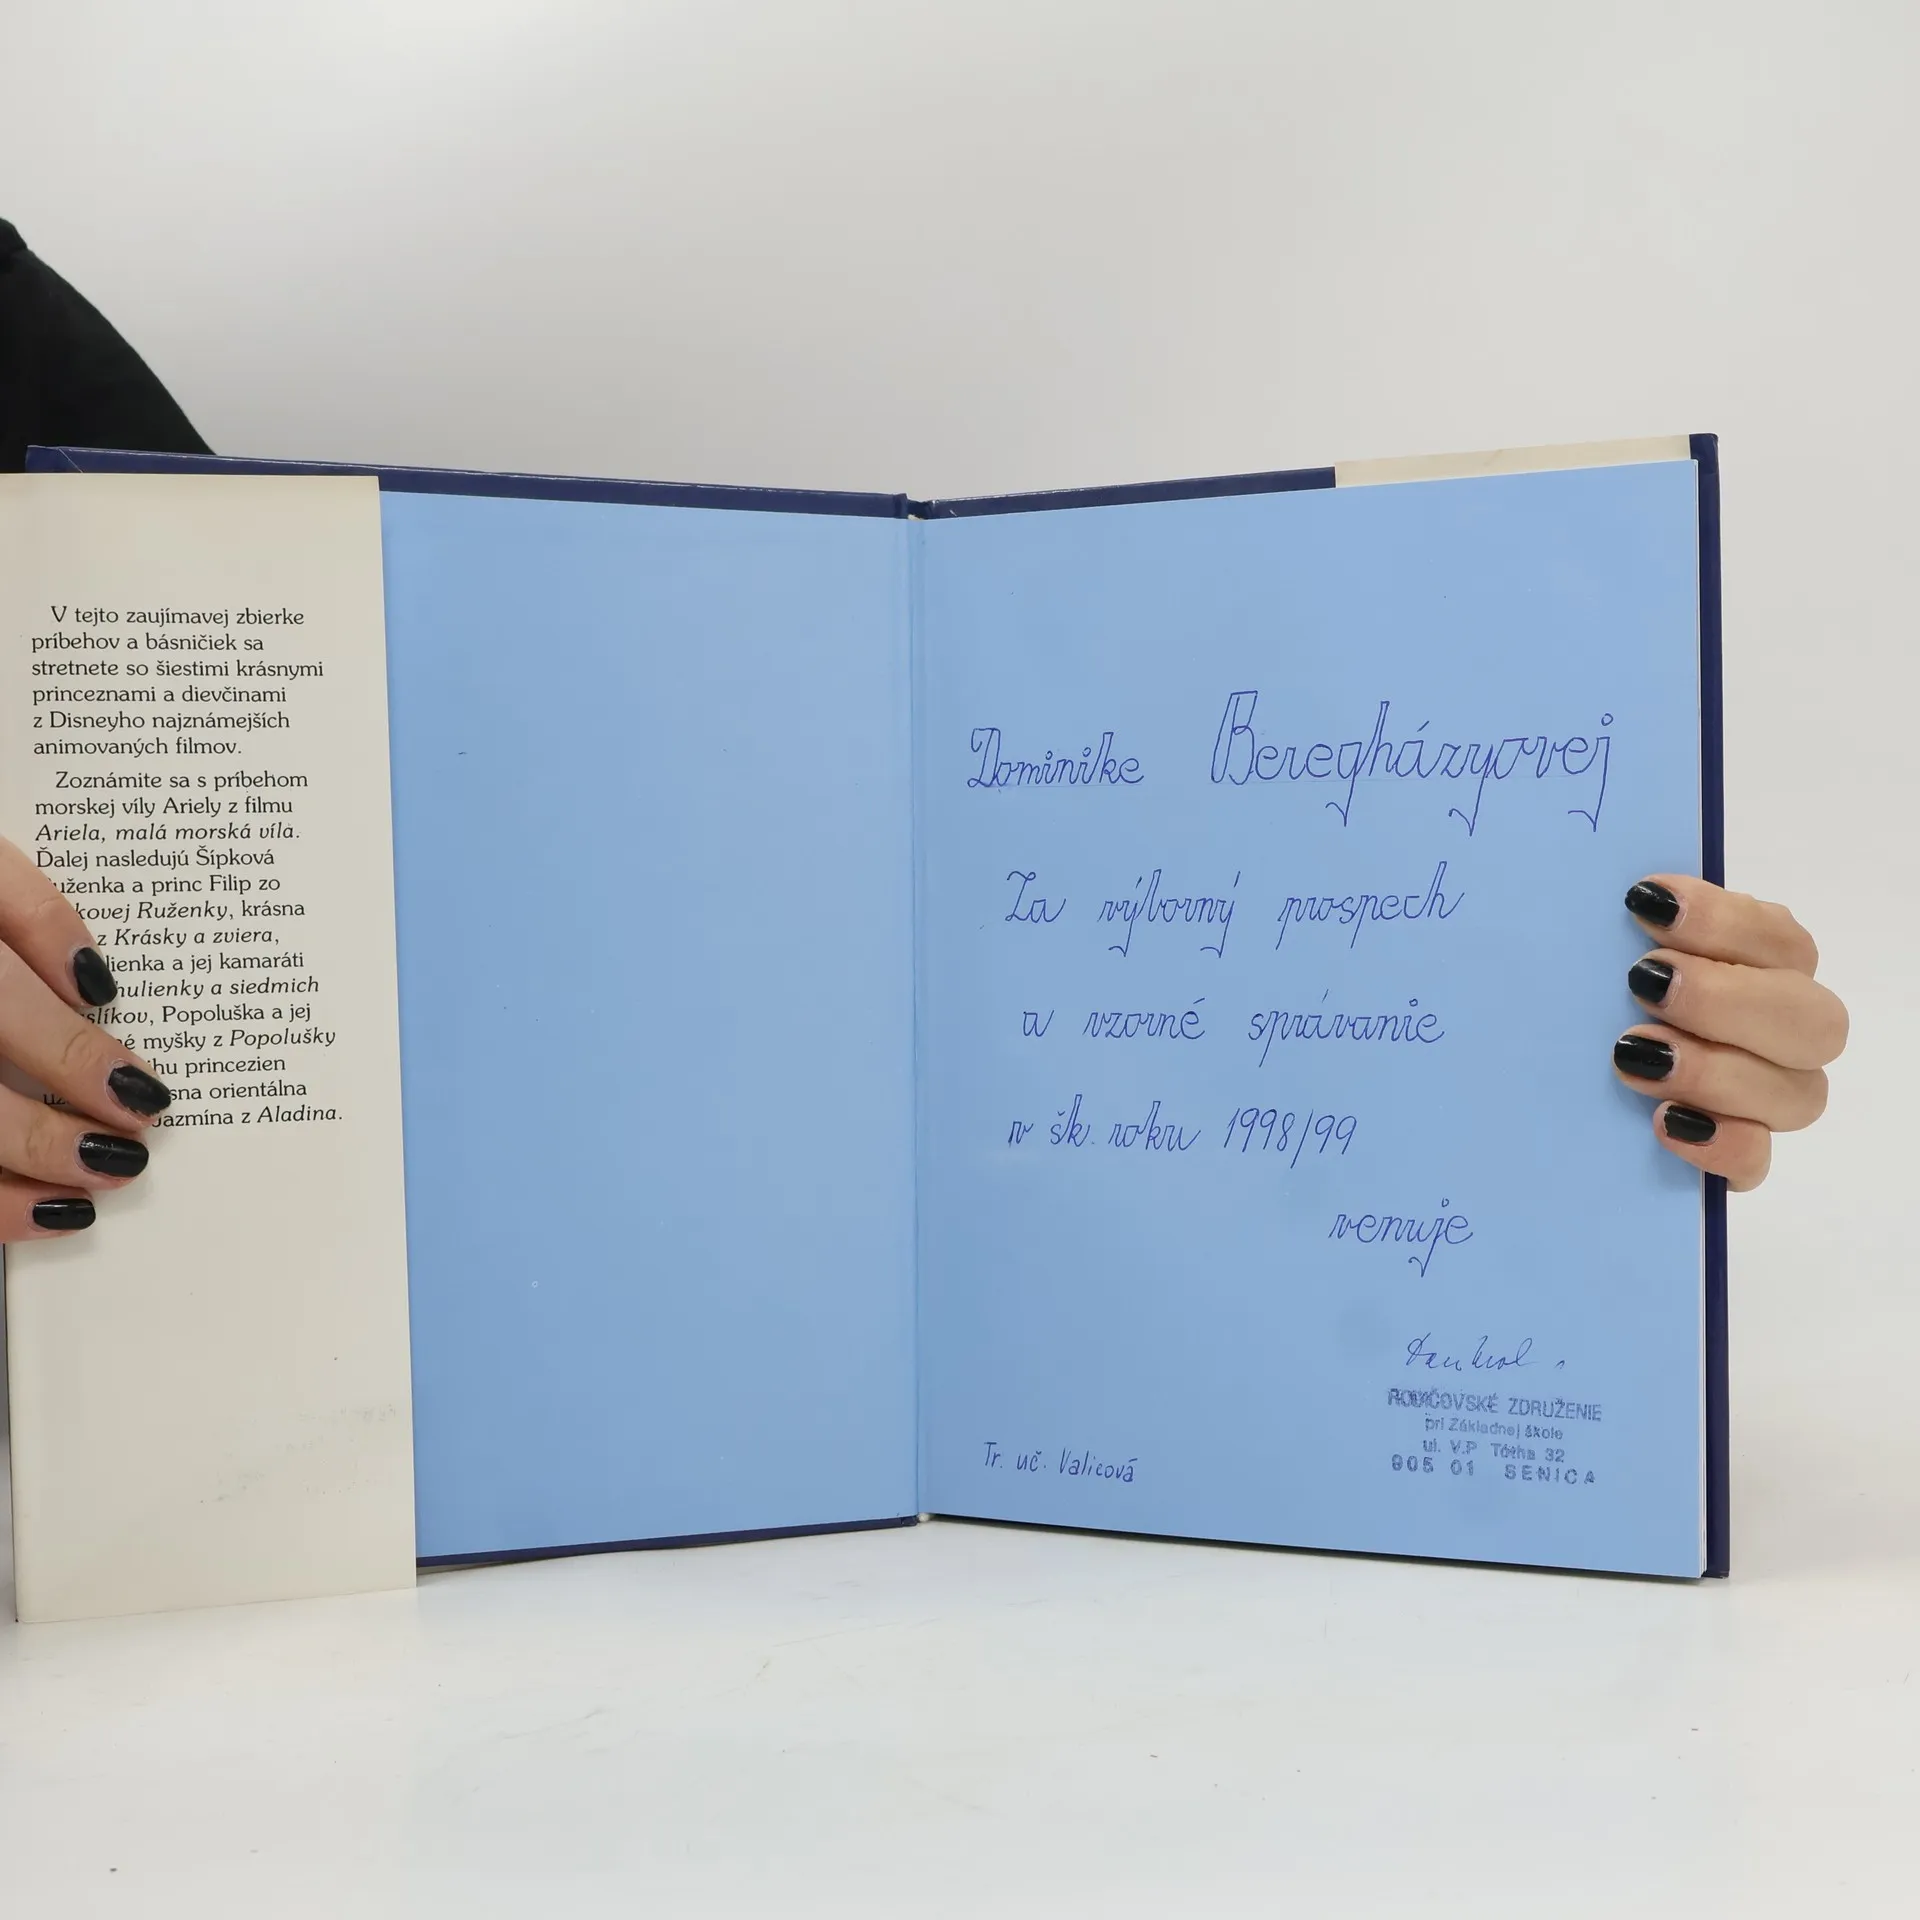 V tejto zaujímavej zbierke
príbehov a básničiek sa
stretnete so šiestimi krásnymi
princeznami a dievčinami
z Disneyho najznámejších
animovaných filmov.
Zoznámite sa s príbehom
morskej víly Ariely z filmu
Ariela, malá morská víla.
Ďalej nasledujú Šípková
uženka a princ Filip zo
kovej Ruženky, krásna
z Krásky a zviera,
lienka a jej kamaráti
hulienky a siedmich
slíkov, Popoluška a jej
é myšky z Popolušky
hu princezien
sna orientálna
Jazmína z Aladina.
Dominike Beregházyovej
Za výborný prospech
a vzorné správanie
v šk. roku 1998/99
venuje
RODIČOVSKÉ ZDRUŽENIE
pri Základnej škole
ul. V.P Tótha 32
905 01 SENICA
Tr. uč. Valicová